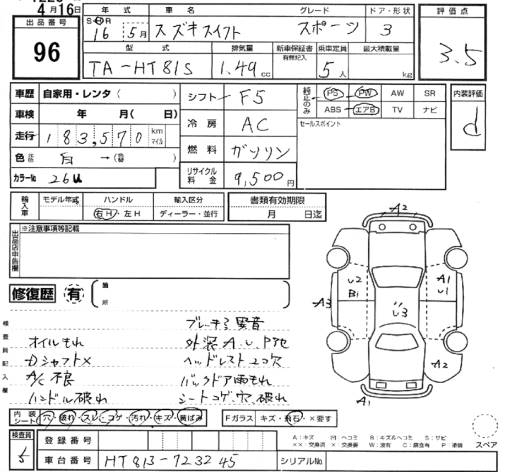 4月16日
出品番号
96
年式 車名 グレード ドア・形状
S H R 16年 5月 スズキスイフト スポーツ 3
型式 排気量 新車保証書 有無記入 乗車定員 最大積載量
TA-HT81S 1.49cc 5人 kg
評価点
3.5
車歴 自家用・レンタ( )
車検 年 月( 日)
走行 183,570 km マイル
色 白→( )
カラーNo 26U
シフト F5
冷房 AC
燃料 ガソリン
リサイクル料金 9,500円
純正のみ PS PW AW SR
ABS エアB TV ナビ
セールスポイント
内装評価
d
輸入車 モデル年式 ハンドル 輸入区分
右H・左H ディーラー・並行
書類有効期限
月 日迄
出品店申告欄 ※注意事項等記載
修復歴 有 箇所
検査員記入欄
ブレーキ引 異音
オイルもれ 外装A.U.P他
Dシャフト× ヘッドレスト2コ欠
A/C不良 バックドア雨もれ
ハンドル破れ シートコゲ穴 破れ
A2
U2
B1
A3
U3
A1
U1
A2
A1
内装 シート 穴・破れ・スレ・コゲ・汚れ・キズ・黄ばみ
Fガラス キズ・飛石・×要す
スペア
検査員
5
登録番号
A:キズ U:ヘコミ B:キズ&ヘコミ S:サビ
車台番号 HT81S-723245 シリアルNo